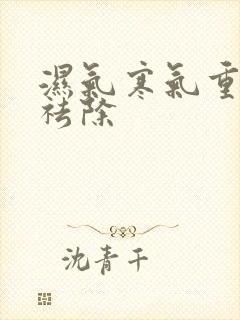 濕氣寒氣重
祛除
沈青千